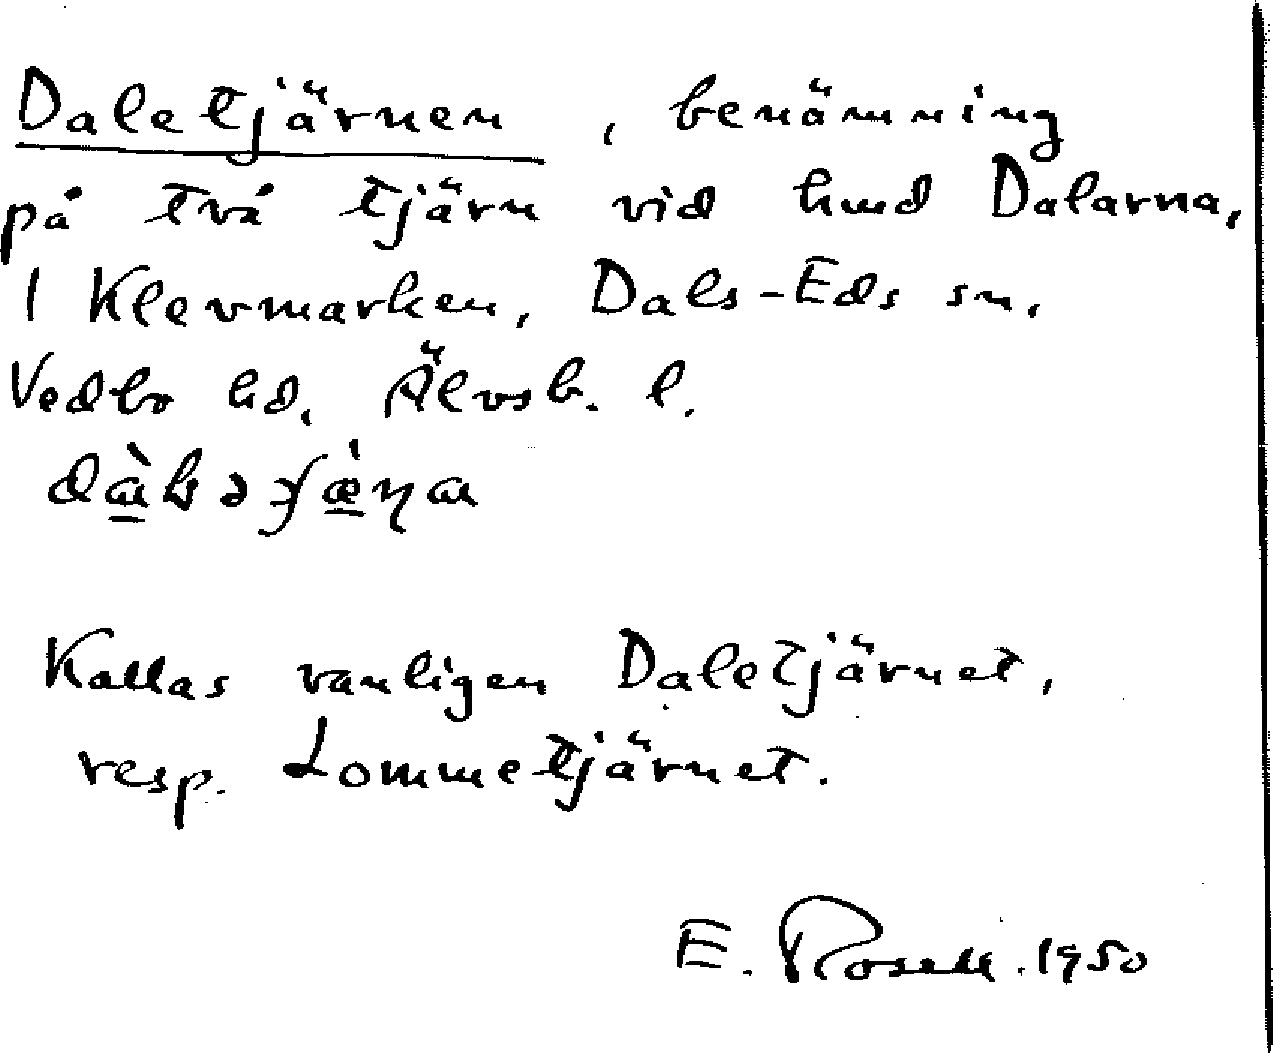 Daletjärnen, benämning
på två tjärn vid hmd Dalarna,
i Klevmarken, Dals-Eds sn.
Vedbo hd. Älvsb. l.
Kallas vanligen Daletjärnet,
resp. Lommetjärnet.
E. Rosell. 1950